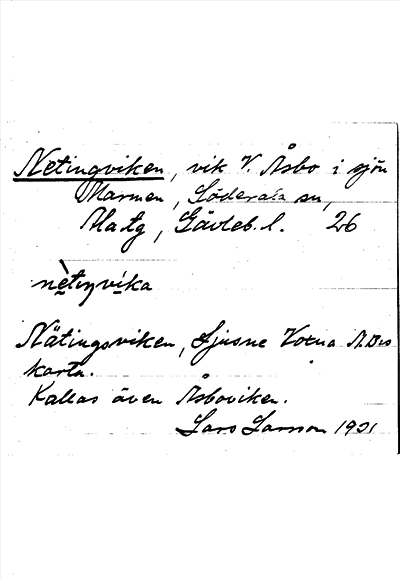 Netingviken, vik V. Åsbo i sjön
Marmen, Söderala sn,
Ala tg, Gävleb. l. 26
nètiŋvika
Nätingsviken, Ljusne Voxna A.B:s
karta.
Kallas även Åsboviken.
Lars Larsson 1931